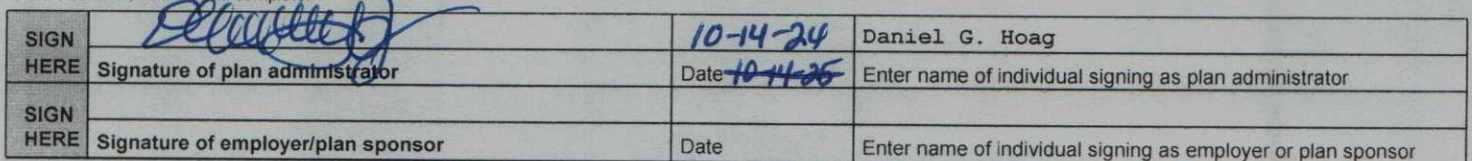 SIGN
10-14-24 Daniel G. Hoag
HERE Signature of plan administrator Date 10-14-25 Enter name of individual signing as plan administrator
SIGN
HERE Signature of employer/plan sponsor Date Enter name of individual signing as employer or plan sponsor